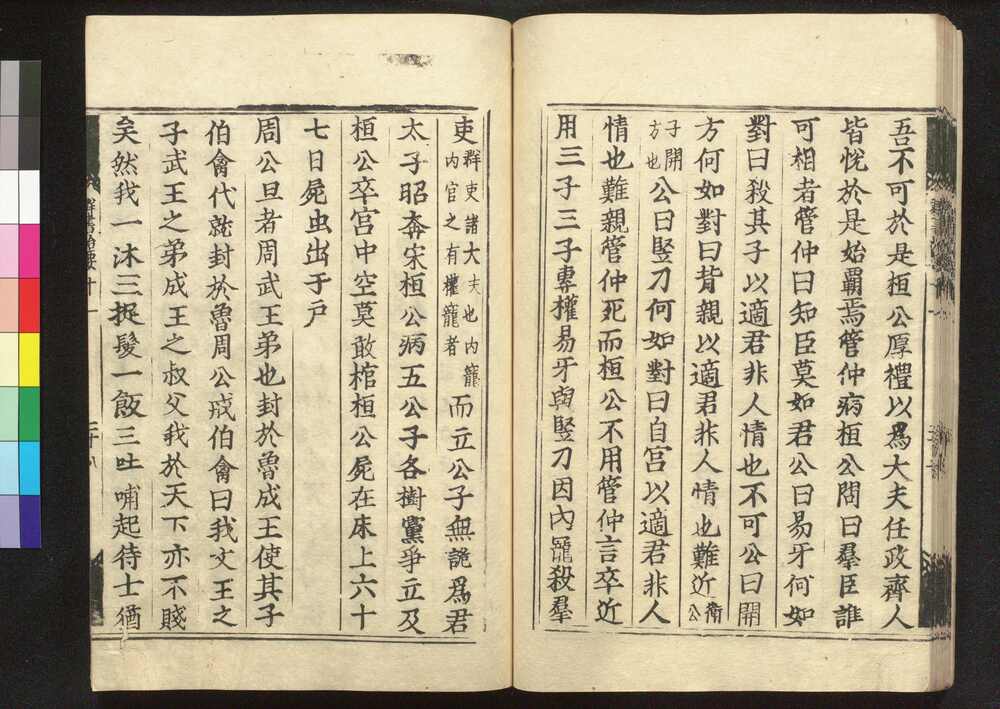 吾不可於是桓公厚禮以爲大夫任政齊人
皆悅於是始霸焉管仲病桓公問曰羣臣誰
可相者管仲曰知臣莫如君公曰易牙何如
對曰殺其子以適君非人情也不可公曰開
方何如對曰背親以適君非人情也難近衛公
子開方也公曰豎刀何如對曰自宮以適君非人
情也難親管仲死而桓公不用管仲言卒近
用三子三子專權易牙與豎刀因內寵殺羣
吏群吏諸大夫也內寵內官之有權寵者而立公子無詭爲君
太子昭奔宋桓公病五公子各樹黨爭立及
桓公卒宮中空莫敢棺桓公屍在床上六十
七日屍虫出于戶
周公旦者周武王弟也封於魯成王使其子
伯禽代就封於魯周公戒伯禽曰我文王之
子武王之弟成王之叔父我於天下亦不賤
矣然我一沐三捉髮一飯三吐哺起待士猶
群書治要十一
二十八